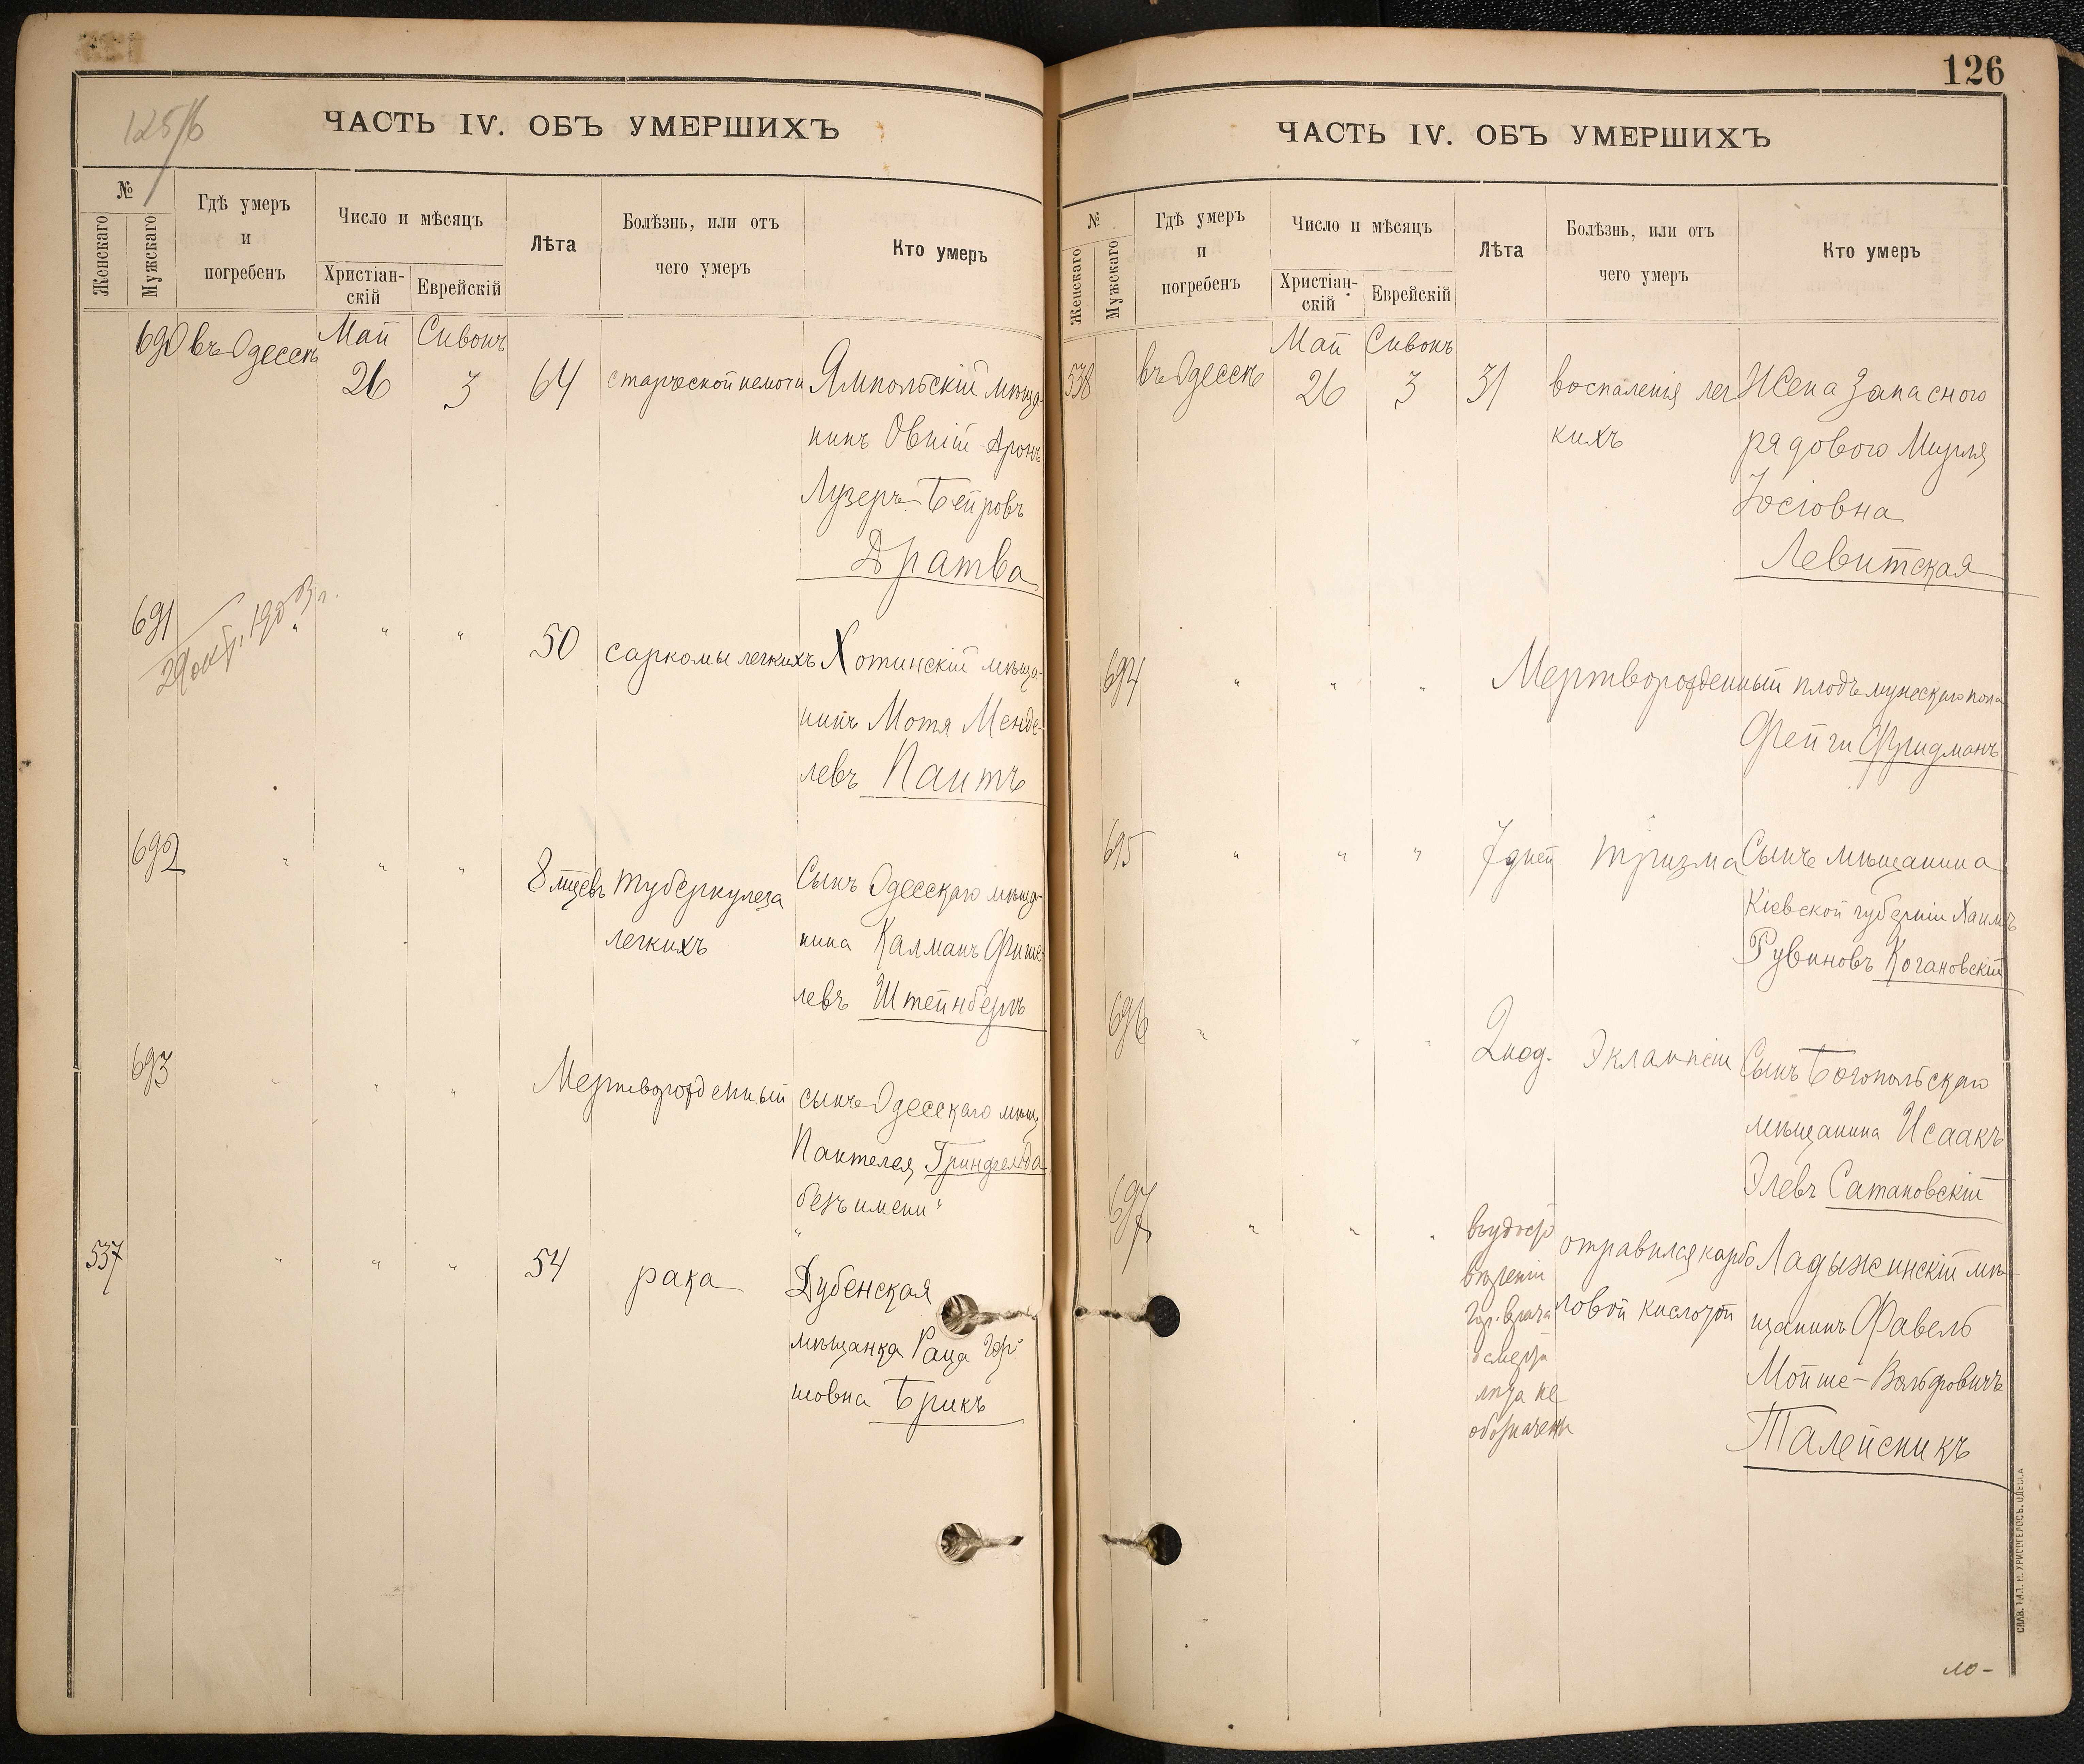 125/6
ЧАСТЬ IV. ОБЪ УМЕРШИХЪ
№
Женскаго
Мужскаго
Гдѣ умеръ
и
погребенъ
Число и мѣсяцъ
Христіан-
скій
Еврейскій
Лѣта
Болѣзнь, или отъ
чего умеръ
Кто умеръ
690 въ Одессѣ Май 26 Сивонъ 3 64 старческой немочи Ямпольскій мѣща-
нинъ Овшій-Аронъ
Лузеръ-Бейровъ
Дратва
691 " " " 50 саркомы легкихъ Хотинскій мѣща-
29 окт. 1903 г.
нинъ Мотя Менде-
левъ Паитъ
692 " " " 8 мцевъ туберкулеза Сынъ Одесскаго мѣща-
легкихъ нина Калманъ Фише-
левъ Штейнбергъ
693 " " " Мертворожденный сынъ Одесскаго мѣщ.
Пантелея Гринфельда
безъ имени"
537 " " " 54 рака Дубенская
мѣщанка Раца Гер-
шовна Брикъ
126
ЧАСТЬ IV. ОБЪ УМЕРШИХЪ
№
Женскаго
Мужскаго
Гдѣ умеръ
и
погребенъ
Число и мѣсяцъ
Христіан-
скій
Еврейскій
Лѣта
Болѣзнь, или отъ
чего умеръ
Кто умеръ
538 въ Одессѣ Май 26 Сивонъ 3 31 воспаленія лег Жена запасного
кихъ рядового Мирля
Іосіовна
Левитская
694 " " " Мертворожденный плодъ мужескаго пола
Фейги Фридманъ
695 " " " 7 дней тризма Сынъ мѣщанина
Кіевской губерніи Хаимъ
Рувиновъ Когановскій
696 " " " 2 год. Эклампсіи Сынъ Богопольскаго
мѣщанина Исаакъ
Элевъ Сатановскій
697 " " " въ удосто отравился карбо Ладыжинскій мѣ-
вѣреніи ловой кислотой щанинъ Фавель
гор. врача Мойше-Вольфовичъ
о смерти Талейсникъ
лѣта не
обозначены
СКЛ. ТИП. И. УРИСГЕРОСЪ. ОДЕССА